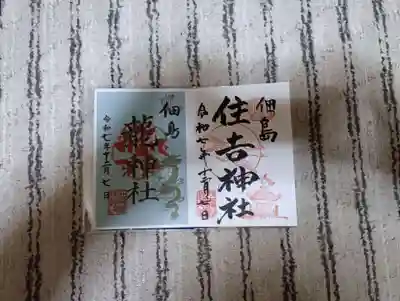 佃島
住吉神社
令和七年十二月七日
佃島
龍神社
令和七年十二月七日